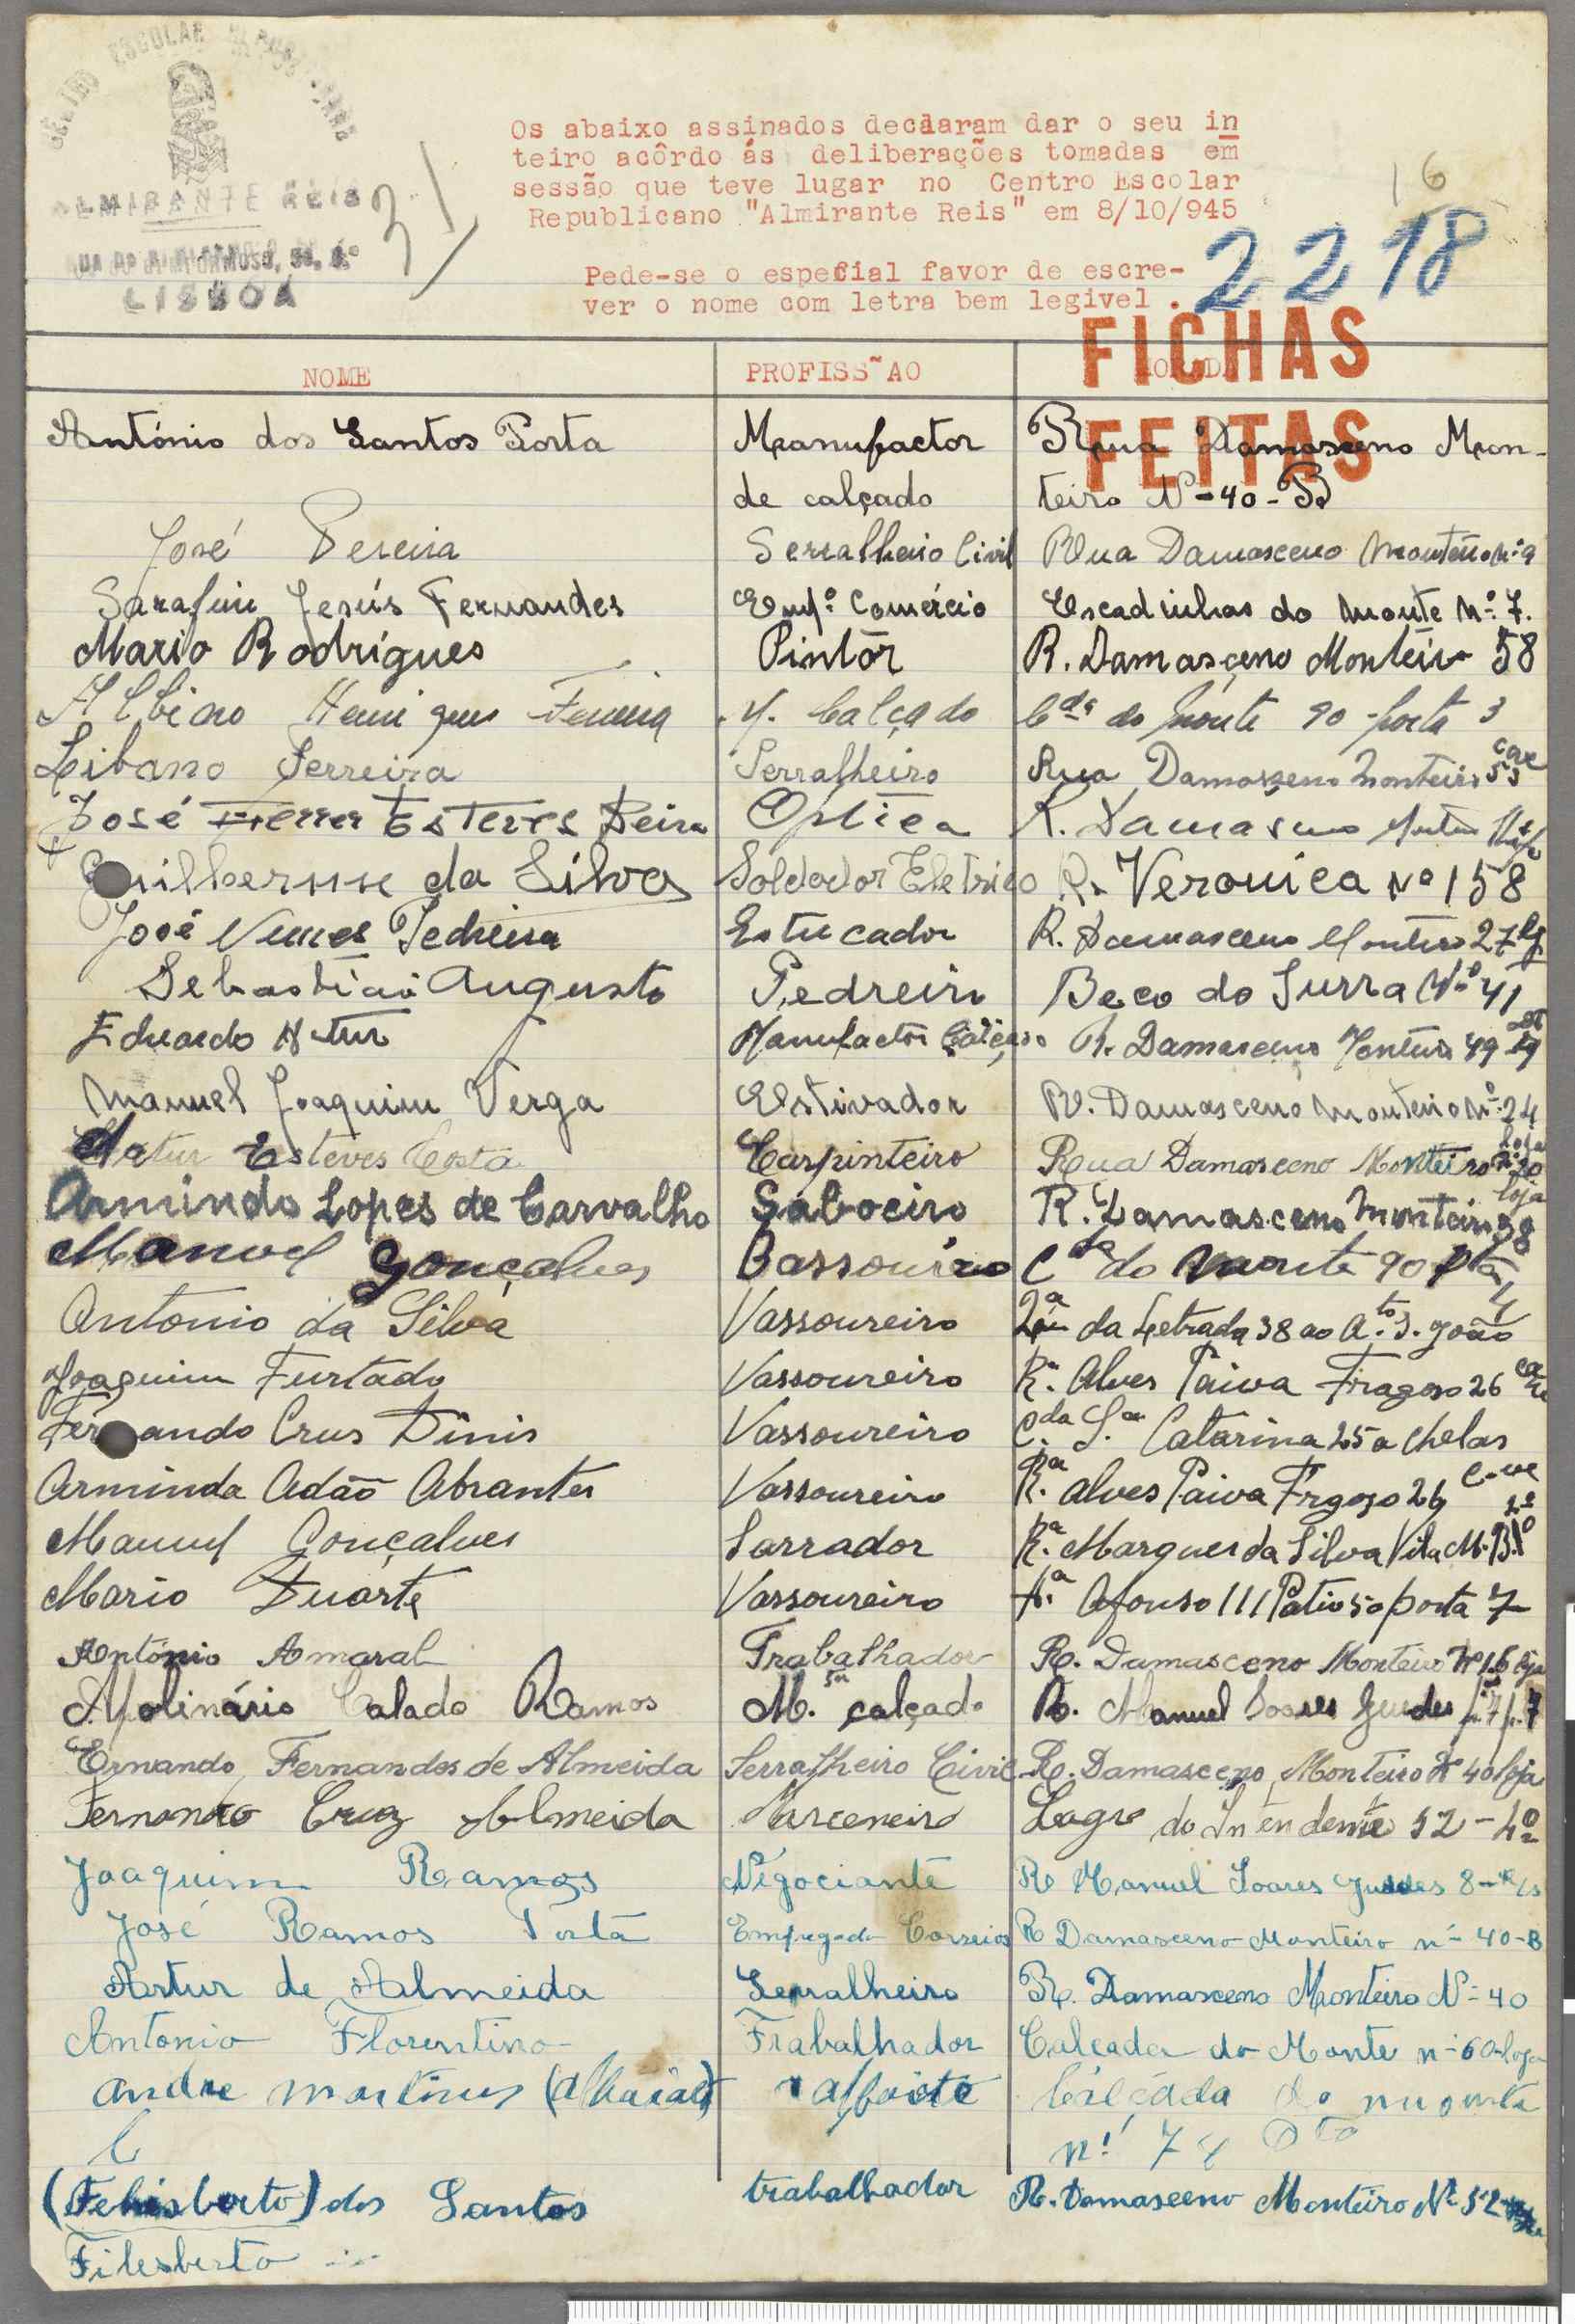 ESCOLAR
ALMIRANTE REIS
LISBOA
31
Os abaixo assinados declaram dar o seu in
teiro acôrdo ás deliberações tomadas em
sessão que teve lugar no Centro Escolar
Republicano "Almirante Reis" em 8/10/945
16
2218
Pede-se o especial favor de escre-
ver o nome com letra bem legivel .
FICHAS
FEITAS
NOME PROFISS~AO
António dos Santos Porta Manufactor Rua Damasceno Mon-
de calçado teiro Nº-40-B
José Pereira Serralheiro Civil Rua Damasceno Monteiro nº 9
Sarafim Jesús Fernandes Empº Comércio Escadinhas do Monte Nº 7.
Mario Rodrígues Pintôr R. Damasçeno Monteiro 58
Albino Henriques Ferreira M. Calçado Cda do Monte 90 porta 3
Libano Ferreira Serralheiro Rua Damasseno Monteiro 53 cave
José Esteves Beira Optica R. Damasceno
Guilherme da Silva Soldador Eletrico R. Veronica Nº 158
José Nunes Pedreira Estucador R. Damasceno Monteiro 27
Sebastião Augusto Pedreiro Beco do Surra Nº 41
Eduardo Artur Manufactor Calçado R. Damasceno Monteiro 49
Manuel Joaquim Verga Estivador R. Damasceno Monteiro nº 24
Artur Esteves Costa Carpinteiro Rua Damasceno Monteiro nº 20 loja
Armindo Lopes de Carvalho Saboeiro R. Damasceno Monteiro 38 loja
Manuel Gonçalves Bassoureiro Cda do Monte 90 pta 4
Antonio da Silva Vassoureiro da Letrada 38 ao Ato S. João
Joaquim Furtado Vassoureiro Rª Alves Paiva Fragoso 26
Fernando Crus Dinis Vassoureiro C.da S.ta Catarina 25 a Chelas
Arminda Adão Abrantes Vassoureiro Rª Alves Paiva Frgoso 26
Manuel Gonçalves Sarrador Rª Marques da Silva Vila M.
Mario Duarte Vassoureiro Afonso III Patio 50 porta 7
António Amaral Trabalhador R. Damasceno Monteiro Nº 16 loja
Apolinário Calado Ramos M. calçado R. Manuel Soares Guedes
Ernando Fernandes de Almeida Serralheiro Civil R. Damasceno Monteiro Nº 40 loja
Fernando Cruz Almeida Marceneiro Lagro do Intendente 52-4º
Joaquim Ramos Négociante R Manuel Soares Guedes 8-
José Ramos Porta Empregado Correios R Damasceno Monteiro nº 40-B
Artur de Almeida Serralheiro R. Damasceno Monteiro Nº 40
Antonio Florentino Trabalhador Calçada do Monte nº 60 loja
andre martins alfaiate Calçada do monte
nº 74 Dto
(Felisberto) dos Santos trabalhador R. Damasceno Monteiro Nº 52
Filesberto